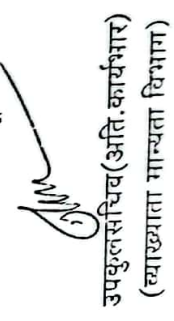 उपकुलसचिव(अति.कार्यभार)
(व्याख्याता मान्यता विभाग)